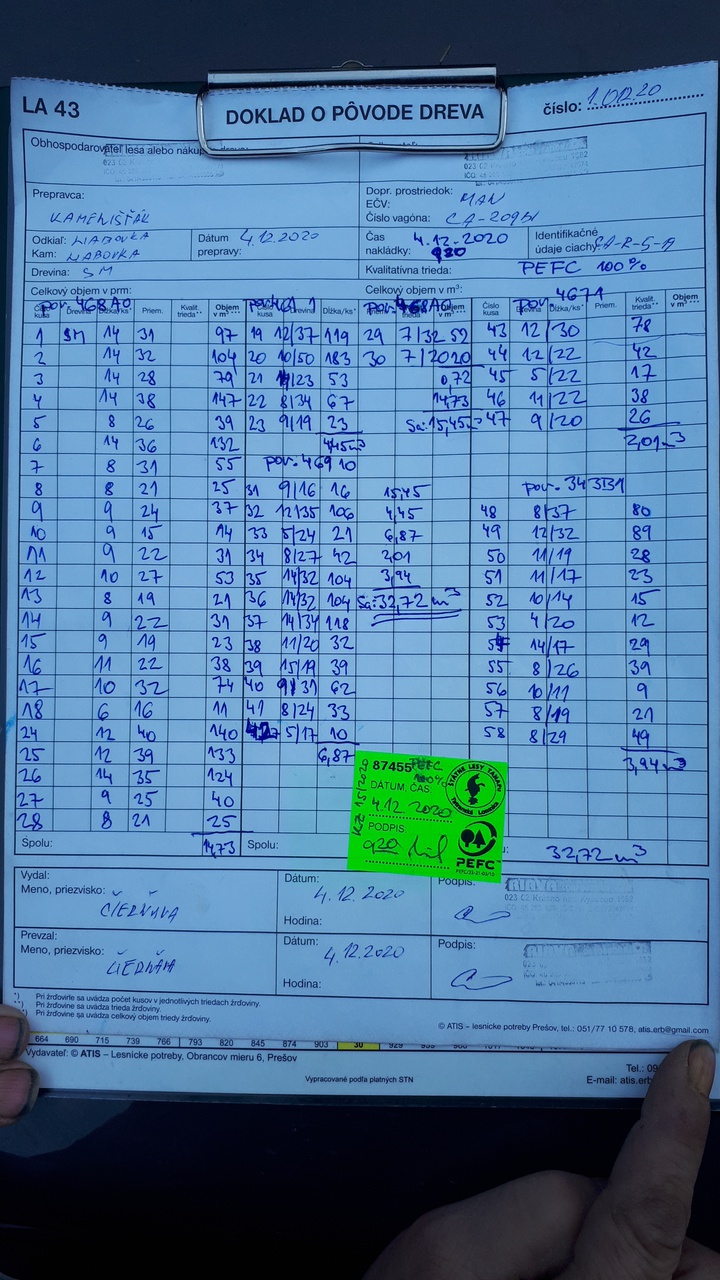 LA 43
DOKLAD O PÔVODE DREVA
číslo: 1.0120
Obhospodarovateľ lesa alebo nákup
Prepravca:
KAMENIŠŤÁK
Dopr. prostriedok: MAN
EČV:
Číslo vagóna: CA-209
Odkiaľ:
Kam:
Dátum prepravy: 4.12.2020
Čas nakládky: 4.12.2020 920
Identifikačné údaje ciachy:
Drevina: SM
Kvalitatívna trieda: PEFC 100%
Celkový objem v prm:
Celkový objem v m³:
por. 468A0 por. 468A0 por. 4671
Číslo kusa Drevina Dĺžka/ks* Priem. Kvalit. trieda** Objem v m³***
1 SM 14 31 97 19 12/37 119 29 7/32 52 43 12/30 78
2 14 32 104 20 10/50 183 30 7/20 20 44 12/22 42
3 14 28 79 21 14/23 53 0,72 45 5/22 17
4 14 38 147 22 8/34 67 14,73 46 11/22 38
5 8 26 39 23 9/19 23 Sa: 15,45 47 9/20 26
6 14 36 132 4,45m³ 2,01m³
7 8 31 55 por. 469 10
8 8 21 25 31 9/16 16 15,45 por. 343B1
9 9 24 37 32 12/35 106 4,45 48 8/37 80
10 9 15 14 33 5/24 21 6,87 49 12/32 89
11 9 22 31 34 8/27 42 2,01 50 11/19 28
12 10 27 53 35 14/32 104 3,94 51 11/17 23
13 8 19 21 36 14/32 104 Sa: 32,72 m³ 52 10/14 15
14 9 22 31 37 14/34 118 53 4/20 12
15 9 19 23 38 11/20 32 54 14/17 29
16 11 22 38 39 15/19 39 55 8/26 39
17 10 32 74 40 9/31 62 56 10/11 9
18 6 16 11 41 8/24 33 57 8/19 21
24 12 40 140 42 5/17 10 58 8/29 49
25 12 39 133 6,87 3,94m³
26 14 35 124
27 9 25 40
28 8 21 25
Spolu: 14,73 Spolu: 32,72 m³
87455 PEFC 100%
DÁTUM, ČAS
4.12 2020
PODPIS
920
KZ 15/2020
ŠTÁTNE LESY TANAPU
Tatranská Lomnica
PEFC
Vydal:
Meno, priezvisko: ČIERŇAVA
Dátum: 4.12.2020
Hodina:
Podpis:
Prevzal:
Meno, priezvisko:
Dátum: 4.12.2020
Hodina:
Podpis:
*) Pri žrďovine sa uvádza počet kusov v jednotlivých triedach žrďoviny.
**) Pri žrďovine sa uvádza trieda žrďoviny.
***) Pri žrďovine sa uvádza celkový objem triedy žrďoviny.
© ATIS – lesnícke potreby Prešov, tel.: 051/77 10 578, atis.erb@gmail.com
664 690 715 739 766 793 820 845 874 903 30
Vydavateľ: © ATIS – Lesnícke potreby, Obrancov mieru 6, Prešov
Tel.: 09
Vypracované podľa platných STN
E-mail: atis.erb